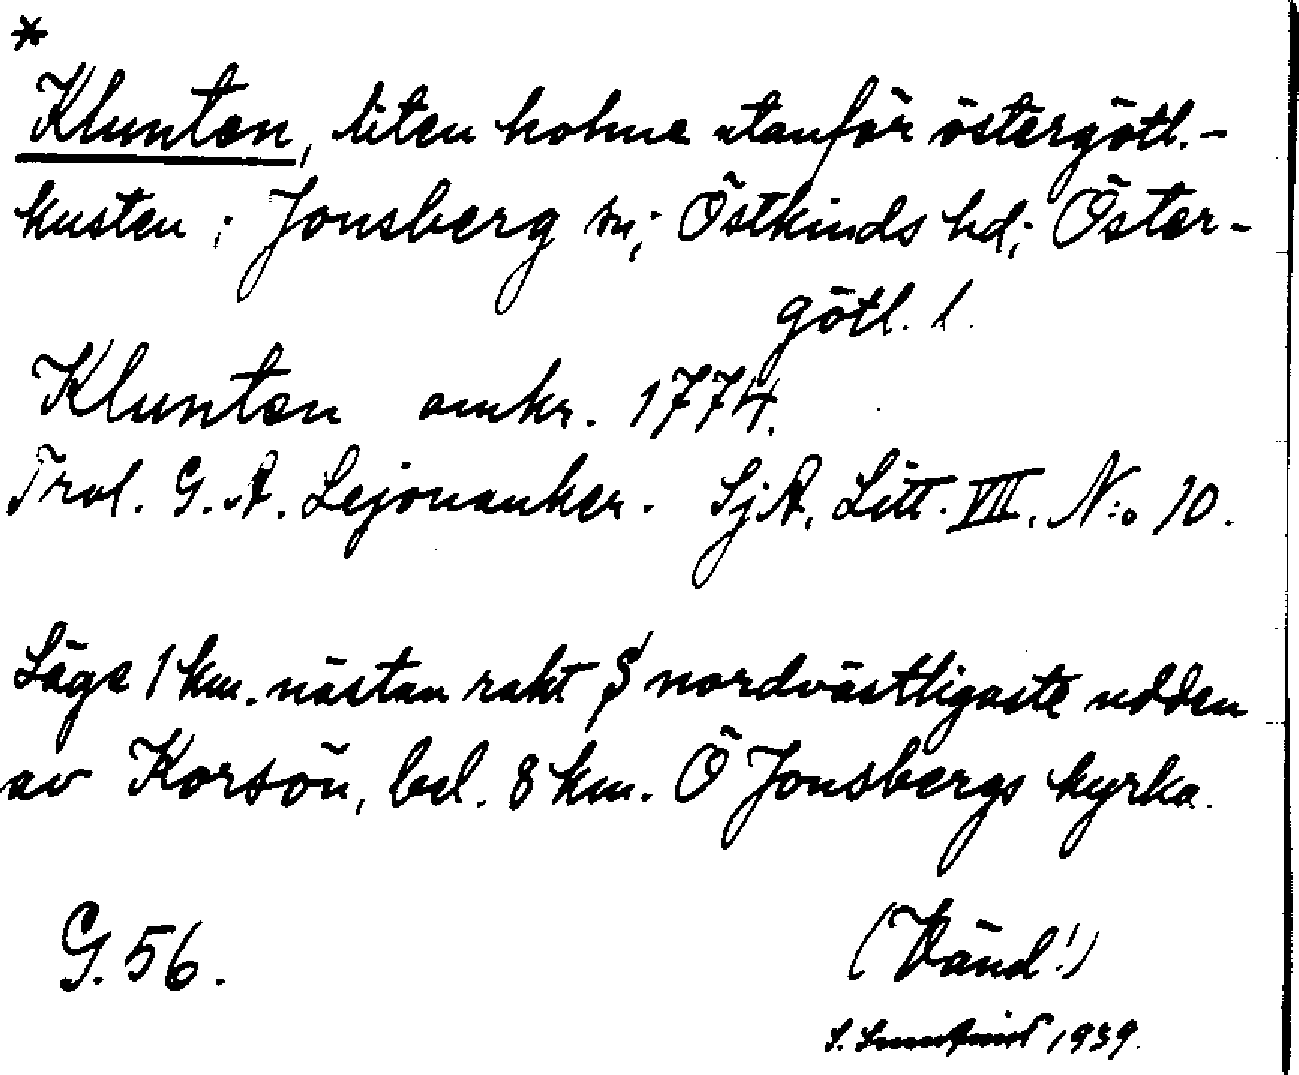 *
Klunten, liten holme utanför östergötl.-
kusten; Jonsberg sn; Östkinds hd; Öster-
götl. l.
Klunten omkr. 1774.
Trol. G. A. Lejonanker. SjA. Litt. VII. N:o 10.
Läge 1 km. nästan rakt S nordvästligaste udden
av Korsön, bel. 8 km. Ö Jonsbergs kyrka.
G. 56.
(Vänd!)
S. 1939.